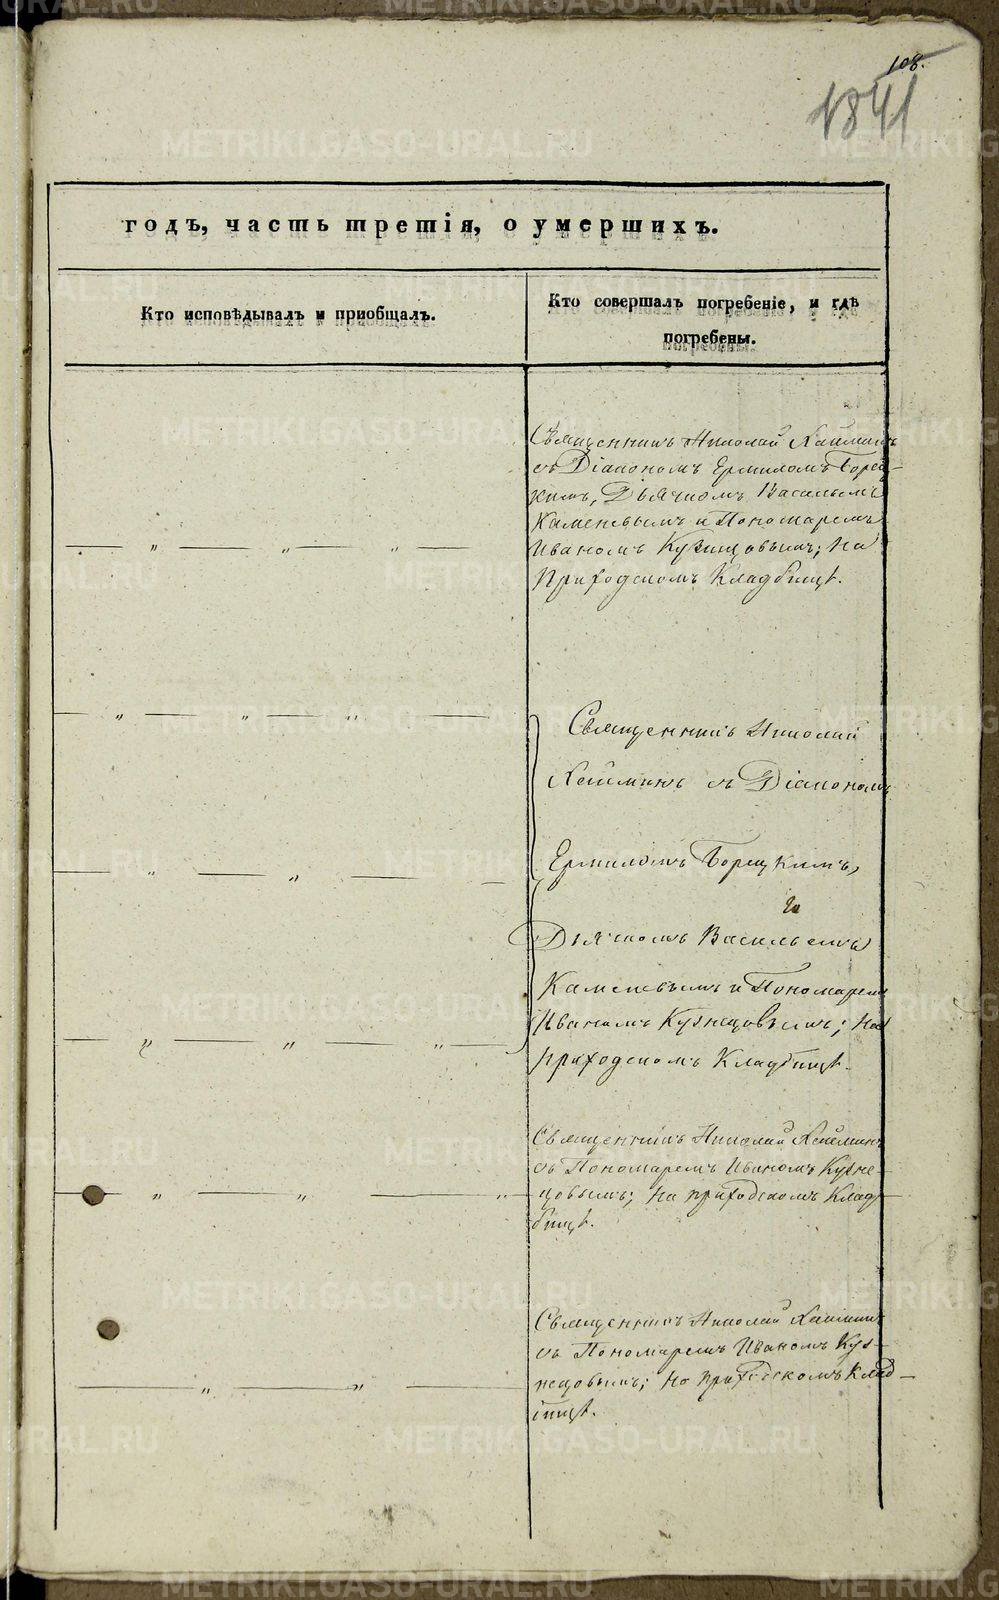 108.
1841
годъ, часть третія, о умершихъ.
Кто исповѣдывалъ и приобщалъ.
Кто совершалъ погребеніе, и гдѣ
погребены.
Священникъ Николай
съ Діакономъ Ермиломъ Борец-
кимъ, Дьячкомъ Васильемъ
Каменевымъ и Пономаремъ
Иваномъ Кузнецовымъ; на
Приходскомъ Кладбищѣ.
Священникъ Николай
съ Діакономъ
Ермиломъ Борецкимъ,
Дьячкомъ Васильемъ
Каменевымъ и Пономаремъ
Иваномъ Кузнецовымъ; на
приходскомъ Кладбищѣ.
Священникъ Николай
съ Пономаремъ Иваномъ Кузне-
цовымъ; на приходскомъ Клад-
бищѣ.
Священникъ Николай
съ Пономаремъ Иваномъ Куз-
нецовымъ; на приходскомъ Клад-
бищѣ.
METRIKI.GASO-URAL.RU